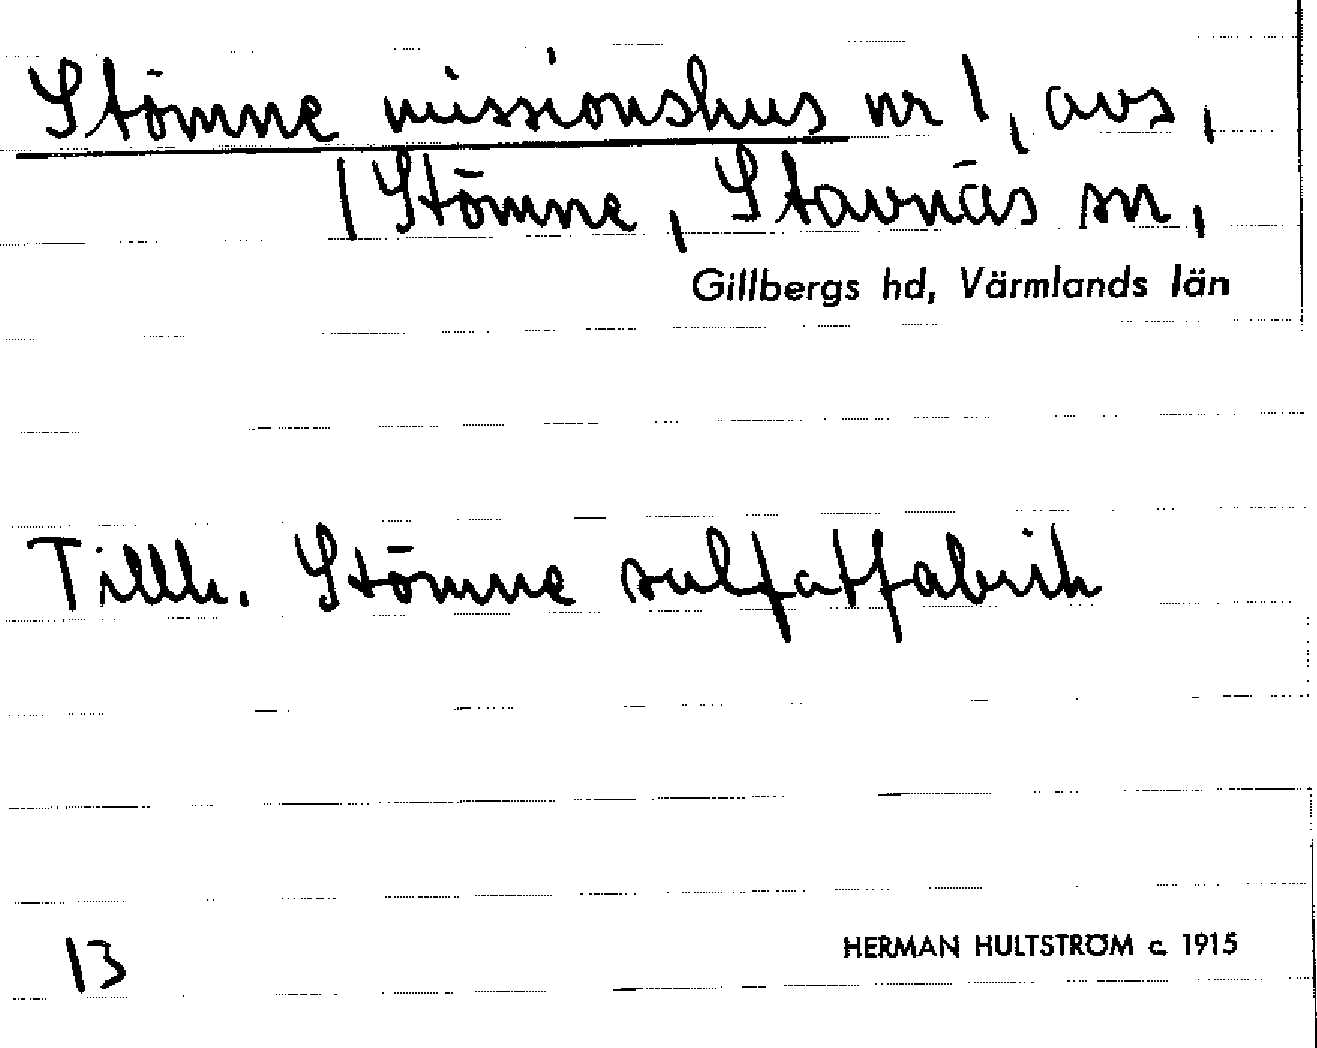 Stömne missionshus nr 1, avs,
1 Stömne, Stavnäs sn,
Gillbergs hd, Värmlands län
Tillh. Stömne sulfatfabrik
13
HERMAN HULTSTRÖM c. 1915